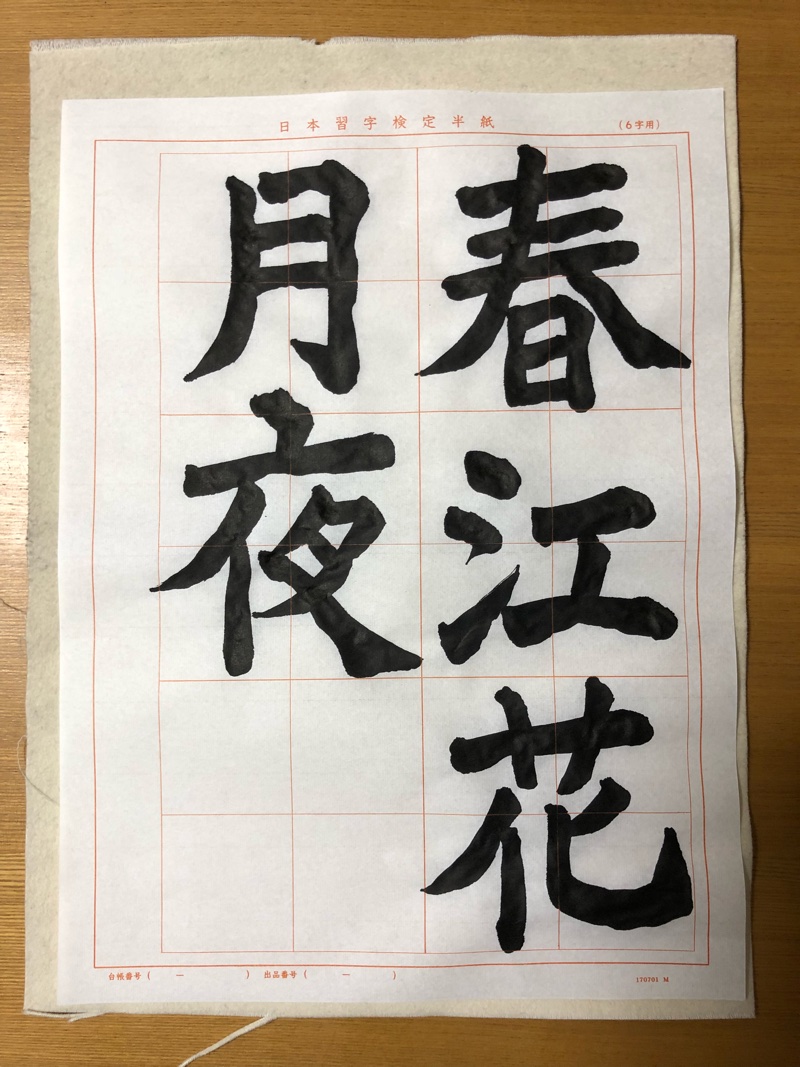 日本習字検定半紙
(6字用)
春江花
月夜
台帳番号 ( ー )
出品番号 ( ー )
170701 M